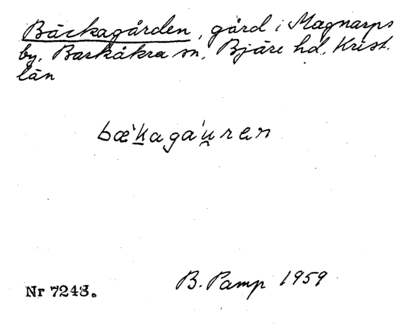 Bäckagården, gård i Magnarps
by, Barkåkra sn, Bjäre hd, Krist.
län
bæ'k̲aga'u̯ren
B. Pamp 1959
Nr 7243.